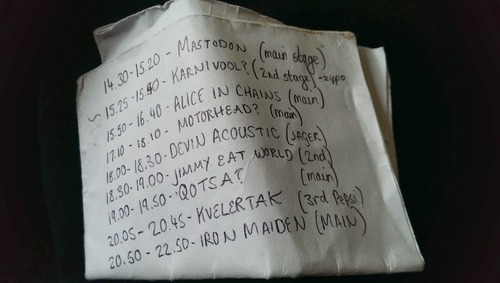 14.30-15.20 - MASTODON (main stage)
~ 15.25-15.50 - KARNIVOOL? (2nd stage) - zippo
15.50 - 16.40 - ALICE IN CHAINS (main)
17.10 - 18.10 - MOTORHEAD? (main)
18.00 - 18.30 - DEVIN ACOUSTIC (JAGER)
18.30 - 19.00 - JIMMY EAT WORLD (2nd)
19.00 - 19.50 - QOTSA? (main)
20.05 - 20.45 - KVELERTAK (3rd Pepsi)
20.50 - 22.50 - IRON MAIDEN (MAIN)